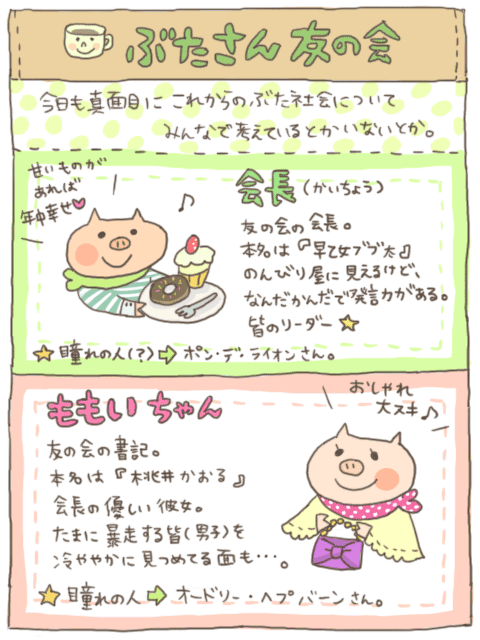 ぶたさん 友の会
今日も真面目に これからの ぶた社会について
みんなで考えているとかいないとか。
甘いものが
あれば
年中幸せ♥
♪
会長(かいちょう)
友の会の会長。
本名は『早乙女ブブ太』
のんびり屋に見えるけど、
なんだかんだで発言力がある。
皆のリーダー★
★瞳れの人(?)➡ポン・デ・ライオンさん。
ももいちゃん
友の会の書記。
本名は『桃井かおる』
会長の優しい彼女。
たまに暴走する皆(男子)を
冷ややかに見つめてる面も…。
★瞳れの人➡オードリー・ヘプバーンさん。
おしゃれ
大スキ♪